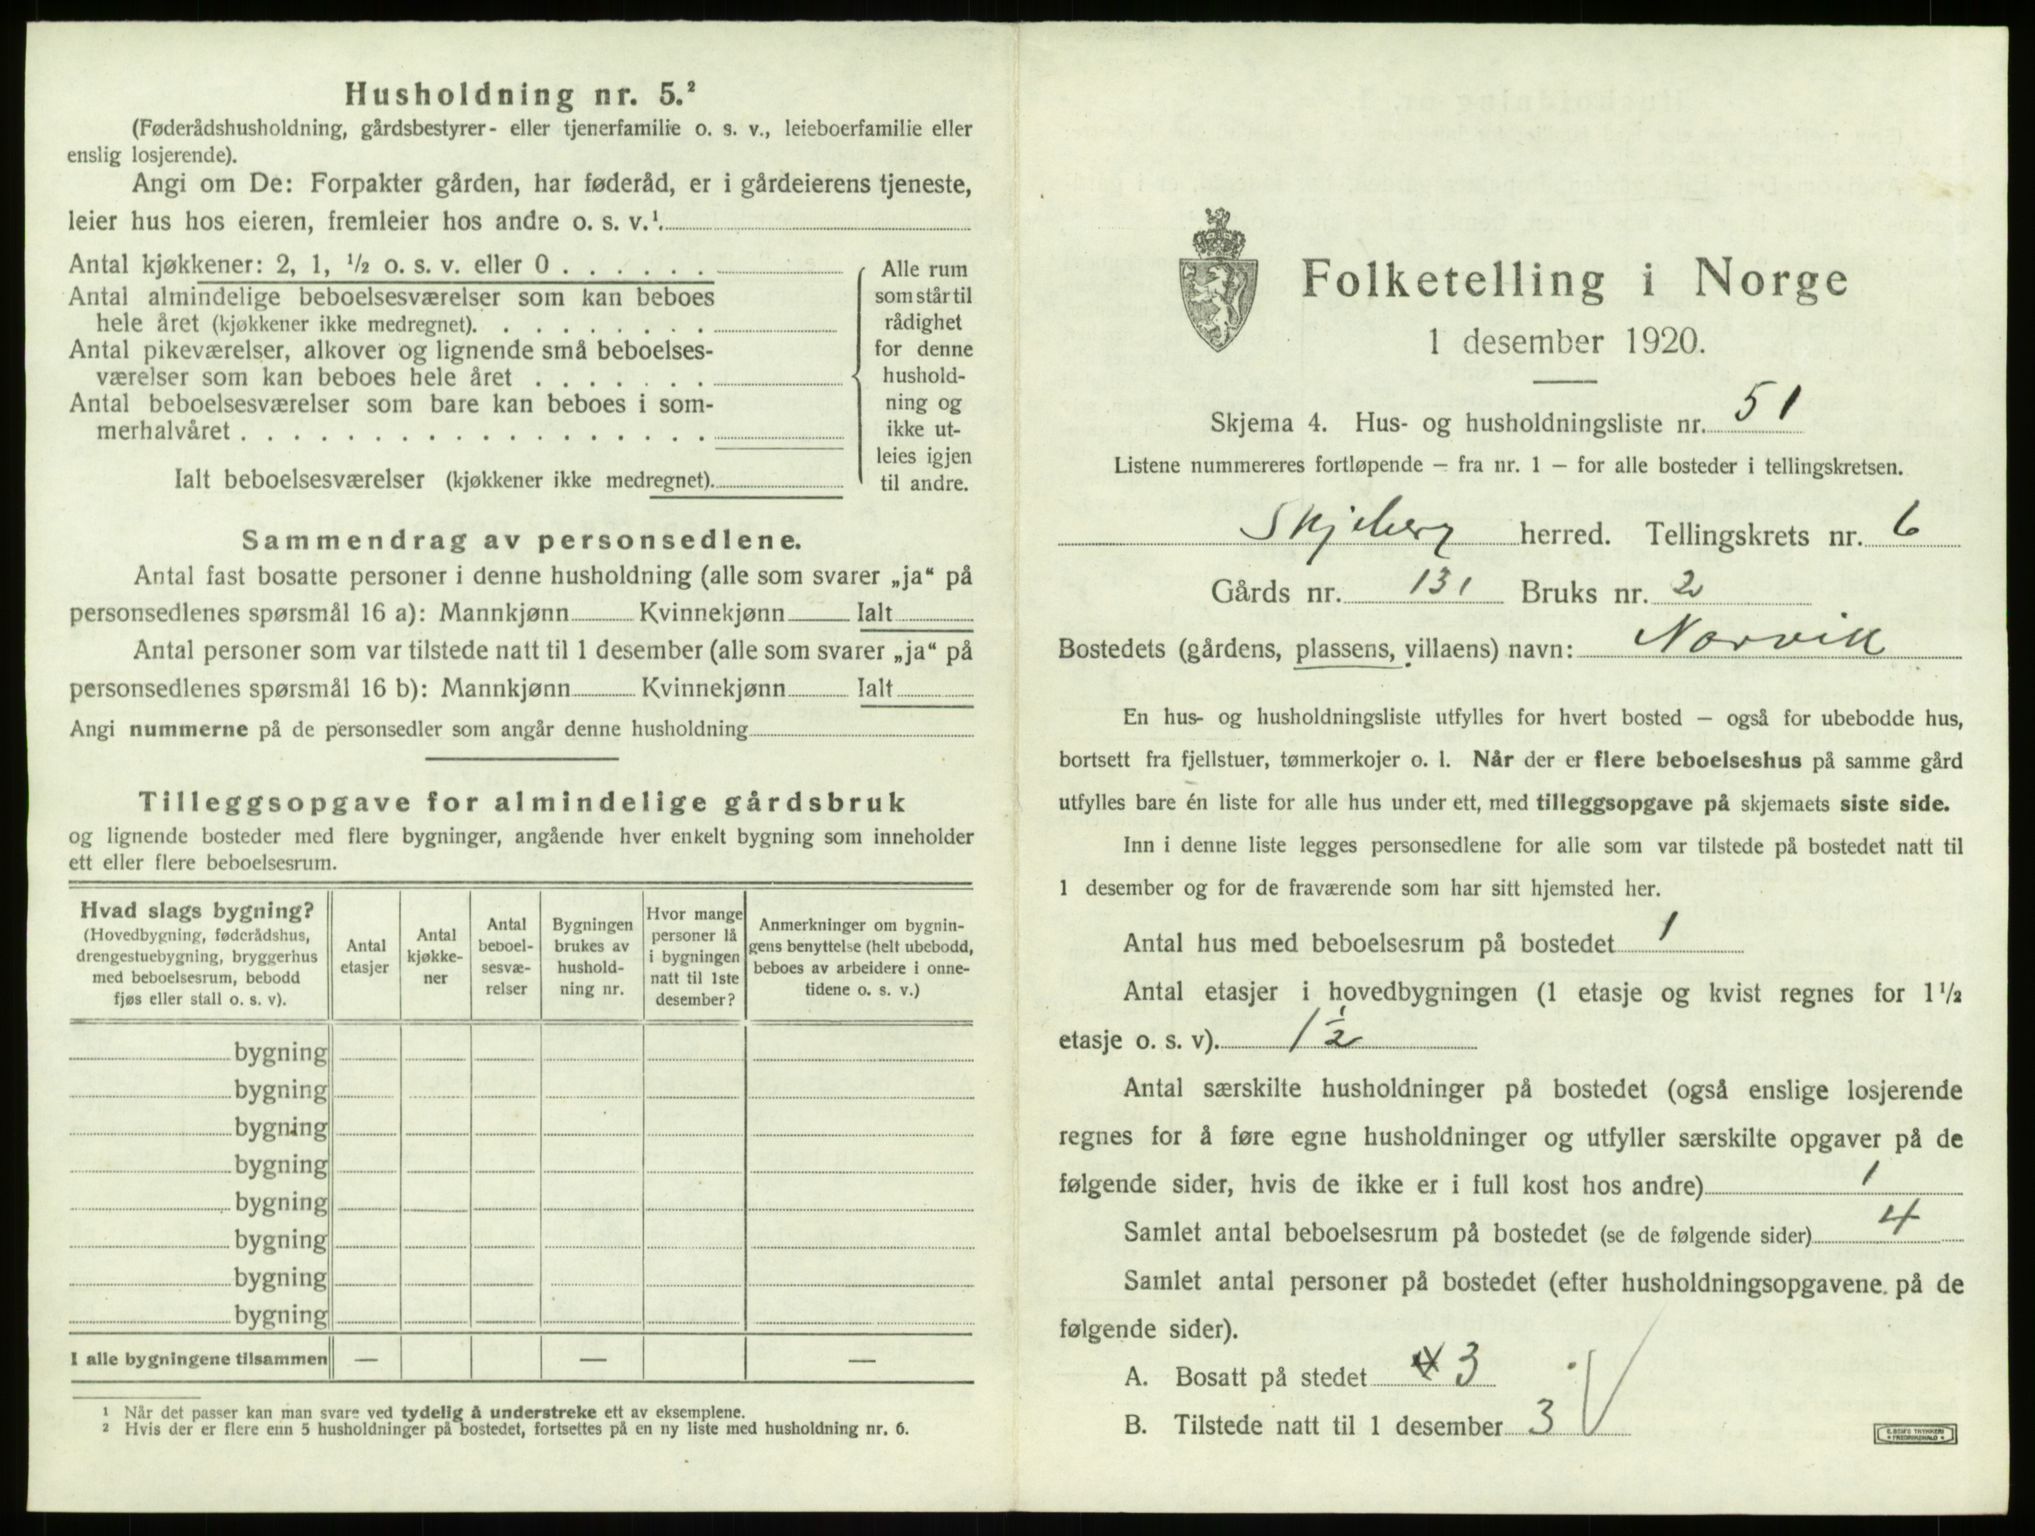 Husholdning nr. 5.²
(Føderådshusholdning, gårdsbestyrer- eller tjenerfamilie o. s. v., leieboerfamilie eller
enslig losjerende).
Angi om De: Forpakter gården, har føderåd, er i gårdeierens tjeneste,
leier hus hos eieren, fremleier hos andre o. s. v.¹
Antal kjøkkener: 2, 1, ½ o. s. v. eller 0 . . . . . .
Antal almindelige beboelsesværelser som kan beboes
hele året (kjøkkener ikke medregnet). . . . . . . . .
Antal pikeværelser, alkover og lignende små beboelses-
værelser som kan beboes hele året . . . . . . .
Antal beboelsesværelser som bare kan beboes i som-
merhalvåret . . . . . . . . . . . . . . . . . .
Ialt beboelsesværelser (kjøkkener ikke medregnet).
Alle rum
som står til
rådighet
for denne
hushold-
ning og
ikke ut-
leies igjen
til andre.
Sammendrag av personsedlene.
Antal fast bosatte personer i denne husholdning (alle som svarer „ja“ på
personsedlenes spørsmål 16 a): Mannkjønn Kvinnekjønn Ialt
Antal personer som var tilstede natt til 1 desember (alle som svarer „ja“ på
personsedlenes spørsmål 16 b): Mannkjønn Kvinnekjønn Ialt
Angi nummerne på de personsedler som angår denne husholdning
Tilleggsopgave for almindelige gårdsbruk
og lignende bosteder med flere bygninger, angående hver enkelt bygning som inneholder
ett eller flere beboelsesrum.
Hvad slags bygning?
(Hovedbygning, føderådshus,
drengestuebygning, bryggerhus
med beboelsesrum, bebodd
fjøs eller stall o. s. v).
Antal
etasjer
Antal
kjøkke-
ner
Antal
beboel-
sesvæ-
relser
Bygningen
brukes av
hushold-
ning nr.
Hvor mange
personer lå
i bygningen
natt til 1ste
desember?
Anmerkninger om bygnin-
gens benyttelse (helt ubebodd,
beboes av arbeidere i onne-
tidene o. s. v.)
bygning
bygning
bygning
bygning
bygning
bygning
bygning
bygning
I alle bygningene tilsammen — — —
¹ Når det passer kan man svare ved tydelig å understreke ett av eksemplene.
² Hvis der er flere enn 5 husholdninger på bostedet, fortsettes på en ny liste med husholdning nr. 6.
Folketelling i Norge
1 desember 1920.
Skjema 4. Hus- og husholdningsliste nr. 51
Listene nummereres fortløpende – fra nr. 1 – for alle bosteder i tellingskretsen.
Skjeberg herred. Tellingskrets nr. 6
Gårds nr. 131 Bruks nr. 2
Bostedets (gårdens, plassens, villaens) navn: Norvik
En hus- og husholdningsliste utfylles for hvert bosted – også for ubebodde hus,
bortsett fra fjellstuer, tømmerkojer o. l. Når der er flere beboelseshus på samme gård
utfylles bare én liste for alle hus under ett, med tilleggsopgave på skjemaets siste side.
Inn i denne liste legges personsedlene for alle som var tilstede på bostedet natt til
1 desember og for de fraværende som har sitt hjemsted her.
Antal hus med beboelsesrum på bostedet 1
Antal etasjer i hovedbygningen (1 etasje og kvist regnes for 1½
etasje o. s. v). 1½
Antal særskilte husholdninger på bostedet (også enslige losjerende
regnes for å føre egne husholdninger og utfyller særskilte opgaver på de
følgende sider, hvis de ikke er i full kost hos andre) 1
Samlet antal beboelsesrum på bostedet (se de følgende sider) 4
Samlet antal personer på bostedet (efter husholdningsopgavene på de
følgende sider).
A. Bosatt på stedet 3
B. Tilstede natt til 1 desember 3